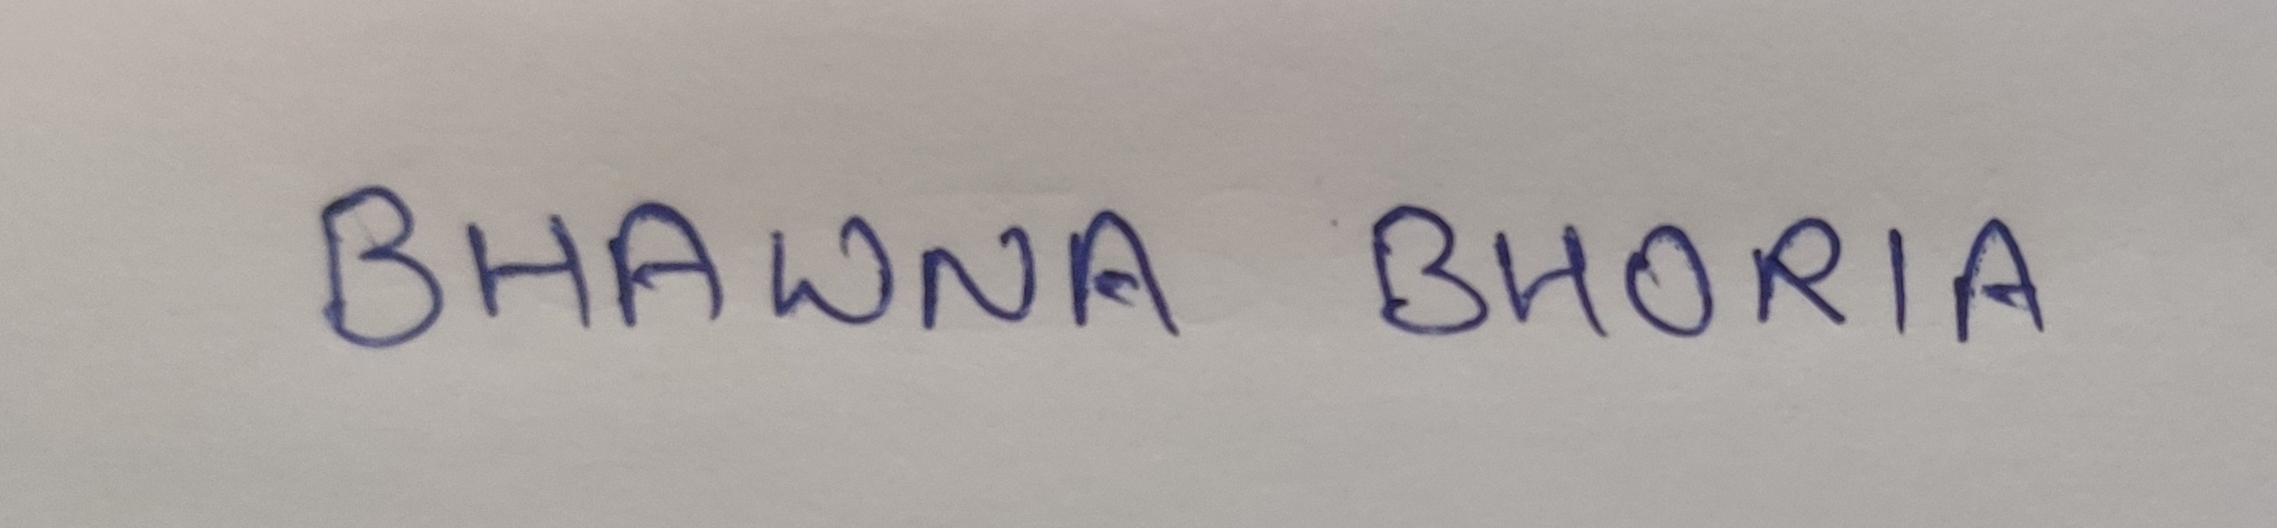 BHAWNA BHORIA